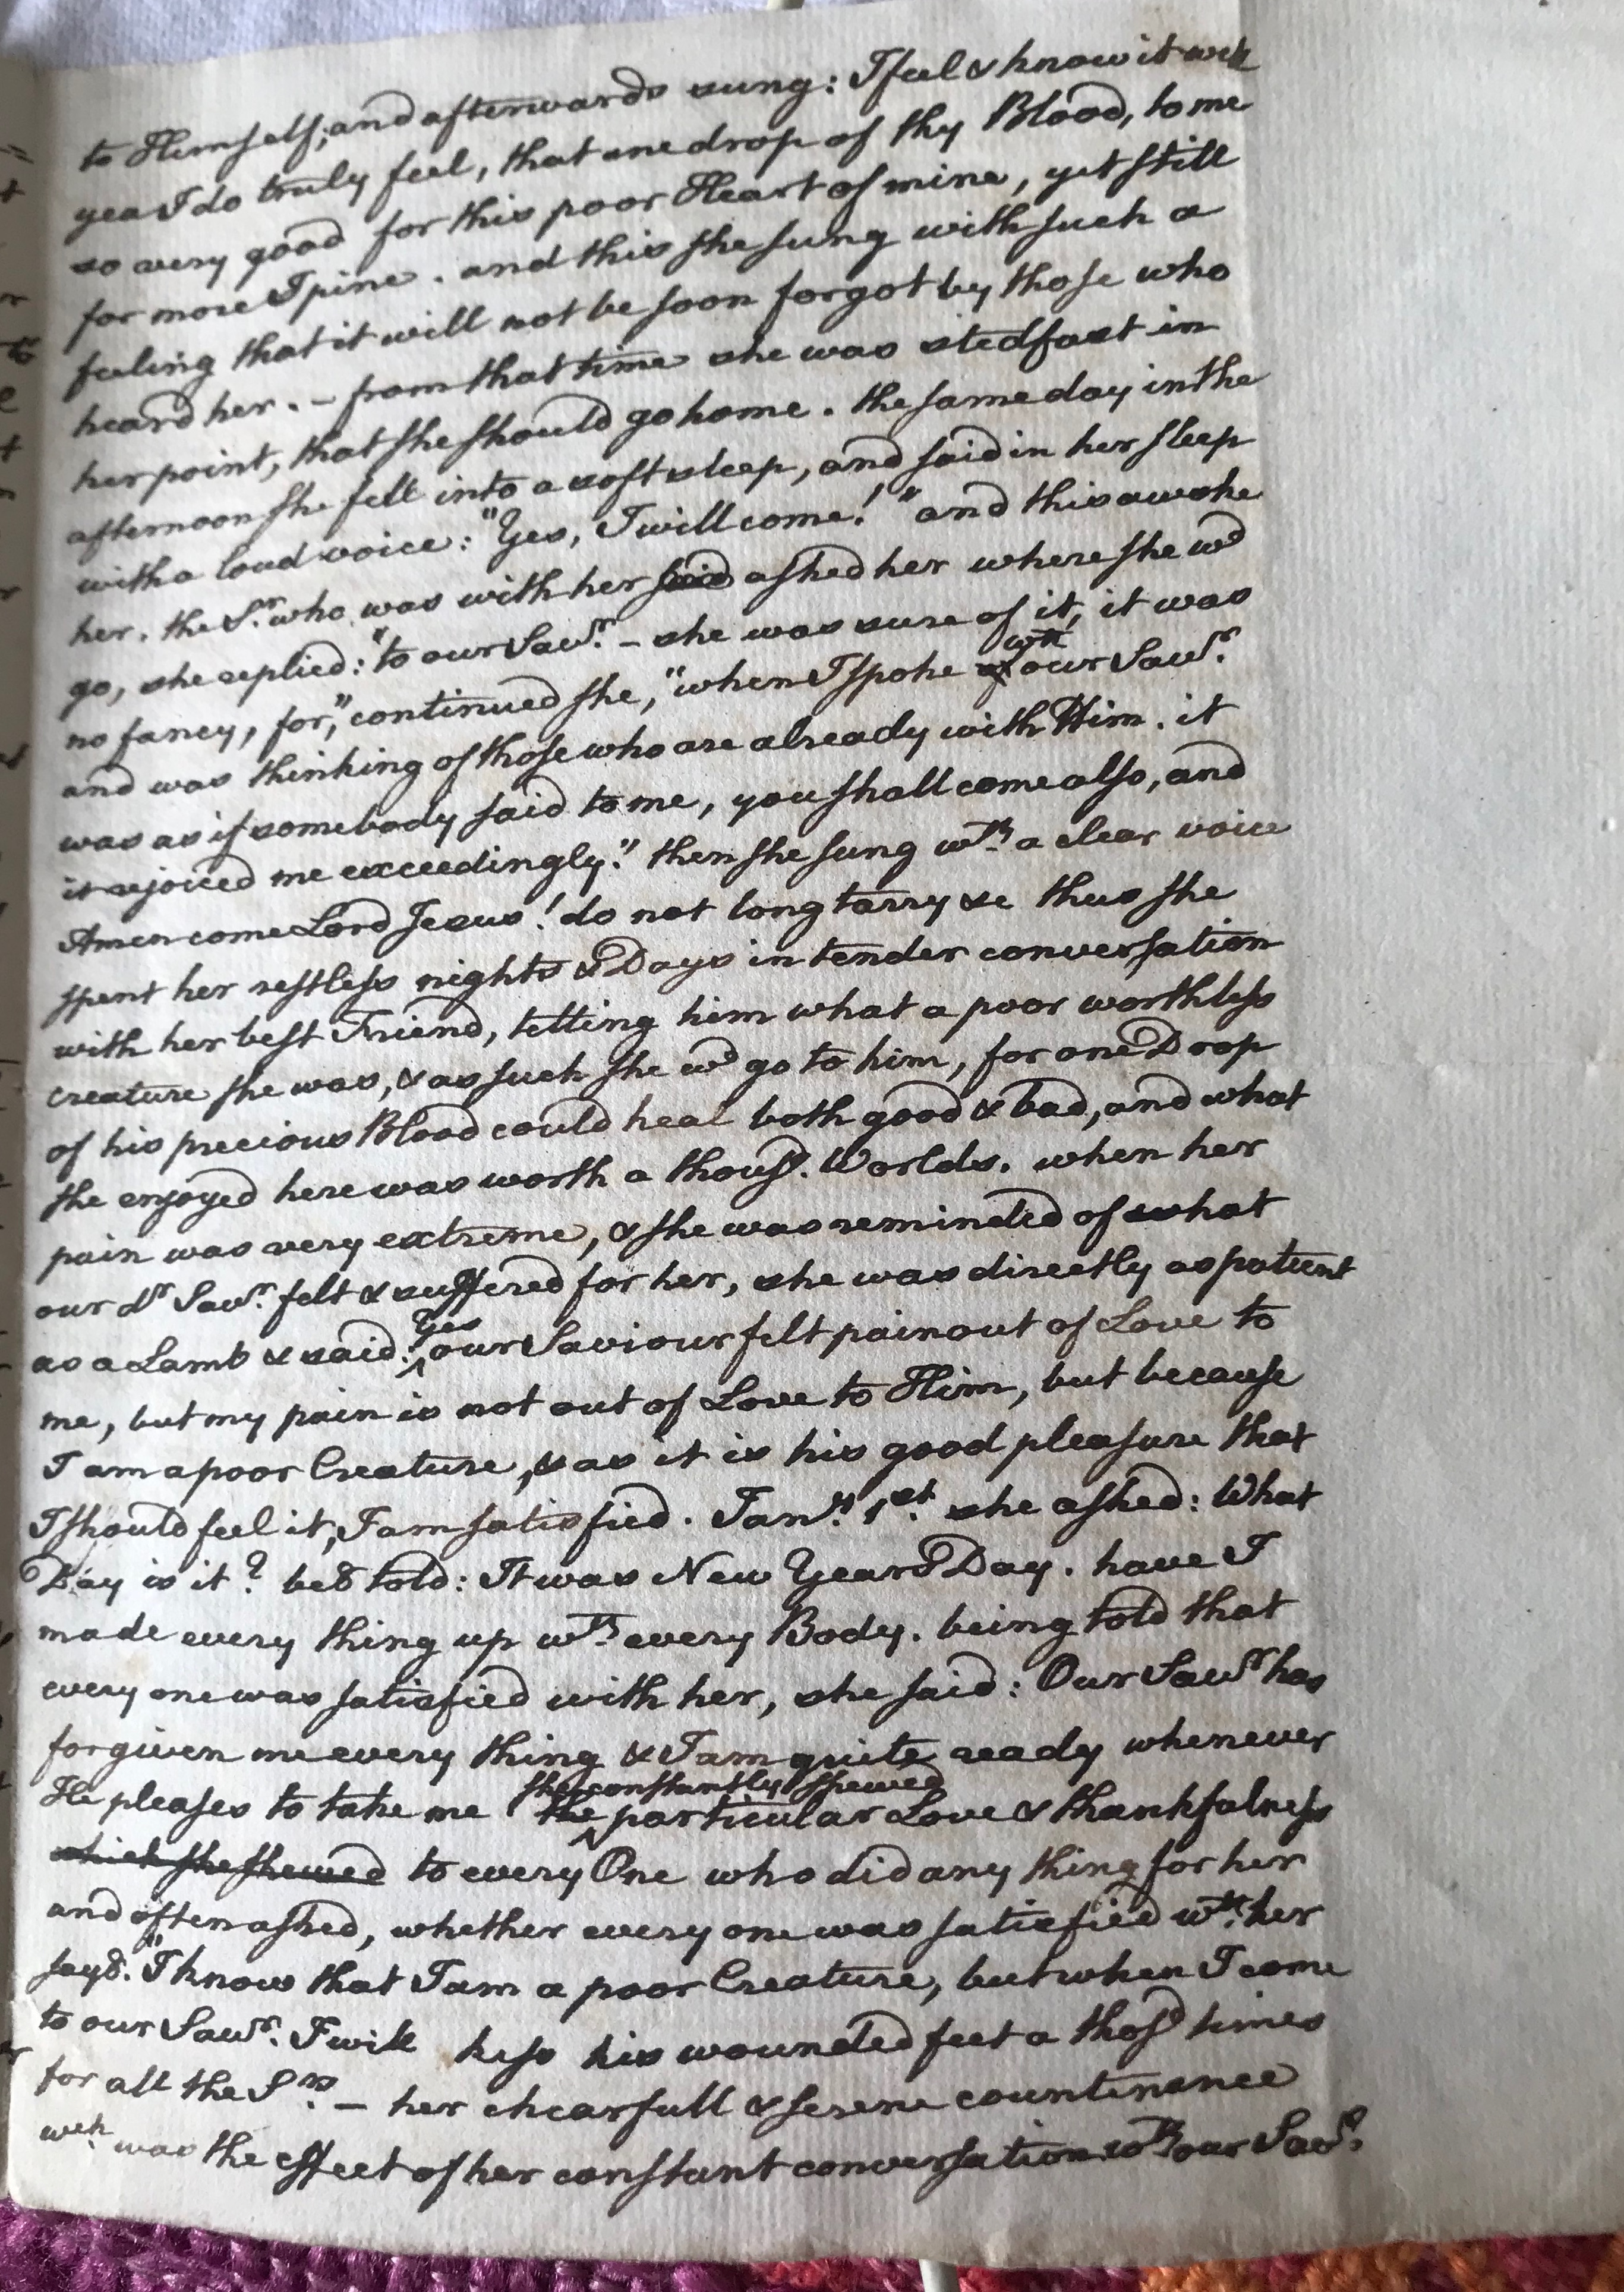 to Himself, and afterwards sung: I feel & know it well
yea I do truly feel, that one drop of thy Blood, to me
so very good for this poor Heart of mine, yet still
for more I pine. and this she sung with such a
feeling that it will not be soon forgot by those who
heard her. - from that time she was stedfast in
her point, that she should go home. the same day in the
afternoon she fell into a soft sleep, and said in her sleep
with a loud voice: "Yes, I will come!" and this awoke
her. the Sr. who was with her said asked her where she wd
go, she replied: "to our Savr. - she was sure of it, it was
no fancy, for," continued she, "when I spoke of wth our Savr.
and was thinking of those who are already with Him. it
was as if somebody said to me, you shall come also, and
it rejoiced me exceedingly." then she sung wth. a clear voice
Amen come Lord Jesus! do not long tarry &c thus she
spent her restless nights & Days in tender conversation
with her best Friend, telling him what a poor worthless
creature she was, & as such she wd go to him, for one Drop
of his precious Blood could heal both good & bad, and what
she enjoyed here was worth a thousd. Worlds. when her
pain was very extreme, & she was reminded of what
our dr Savr. felt & suffered for her, she was directly as patient
as a Lamb & said: Yes our Saviour felt pain out of Love to
me, but my pain is not out of Love to Him, but because
I am a poor Creature, & as it is his good pleasure that
I should feel it, I am satisfied. Jany. 1st. she asked: What
Day is it? beg told: It was New Years Day. have I
made every thing up wth. every Body. being told that
every one was satisfied with her, she said: Our Savr has
forgiven me every thing & I am quite ready whenever
He pleases to take me she constantly shewed the particular Love & thankfulness
which she shewed to every One who did any thing for her
and often asked, whether every one was satisfied wth. her
sayg. "I know that I am a poor Creature, but when I come
to our Savr. I will kiss his wounded feet a thosd times
for all the Srs. - her chearfull & serene countinance
wch. was the effect of her constant conversation wth our Savr.